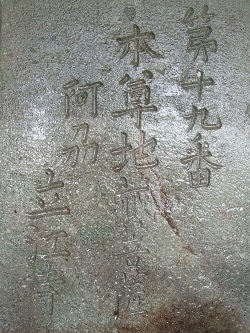 第十九番
本尊地蔵菩薩
阿刕
立江寺